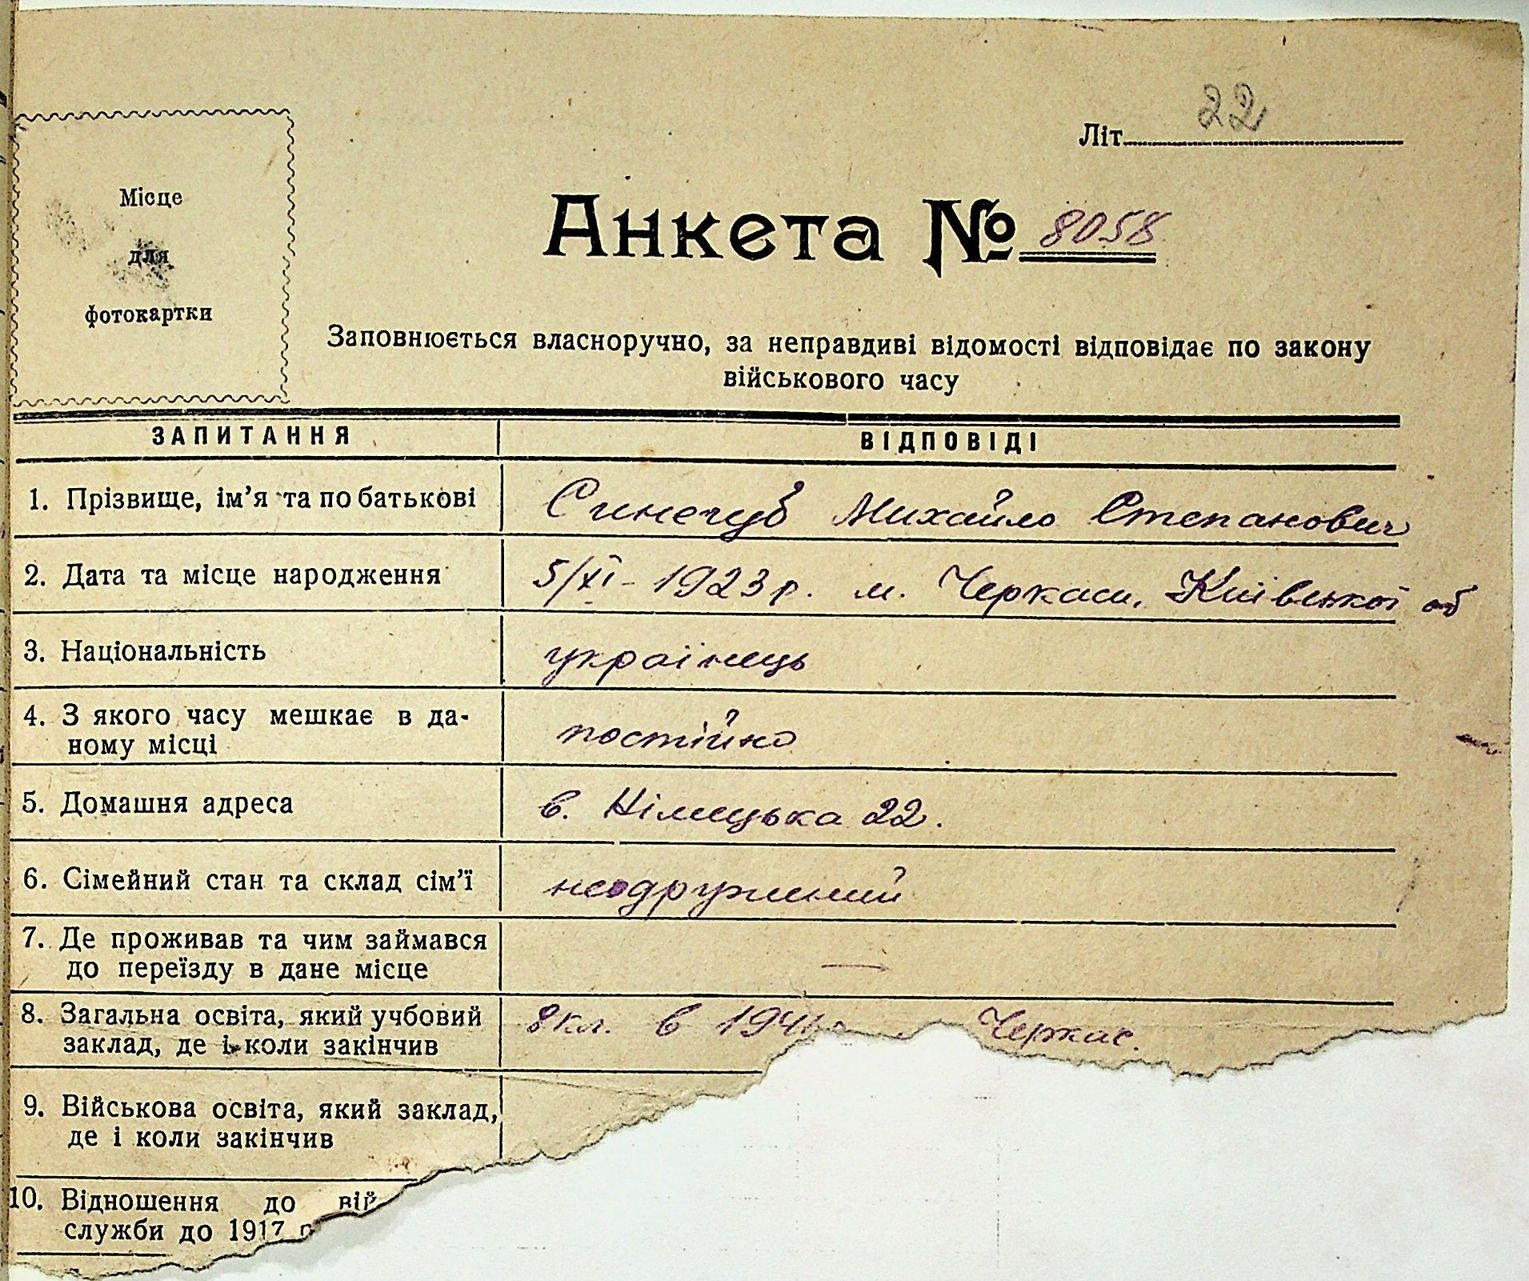 22
Літ
Місце
для
фотокартки
Анкета № 8058
Заповнюється власноручно, за неправдиві відомості відповідає по закону
військового часу
ЗАПИТАННЯ ВІДПОВІДІ
1. Прізвище, ім'я та по батькові Синегуб Михайло Степанович
2. Дата та місце народження 5/XI - 1923 р. м. Черкаси, Київської об
3. Національність українець
4. З якого часу мешкає в да-
ному місці постійно
5. Домашня адреса в. Німецька 22.
6. Сімейний стан та склад сім'ї неодружений
7. Де проживав та чим займався
до переїзду в дане місце —
8. Загальна освіта, який учбовий 8 кл. в 194 Черкас.
заклад, де і коли закінчив
9. Військова освіта, який заклад,
де і коли закінчив
10. Відношення до вій
служби до 1917 р